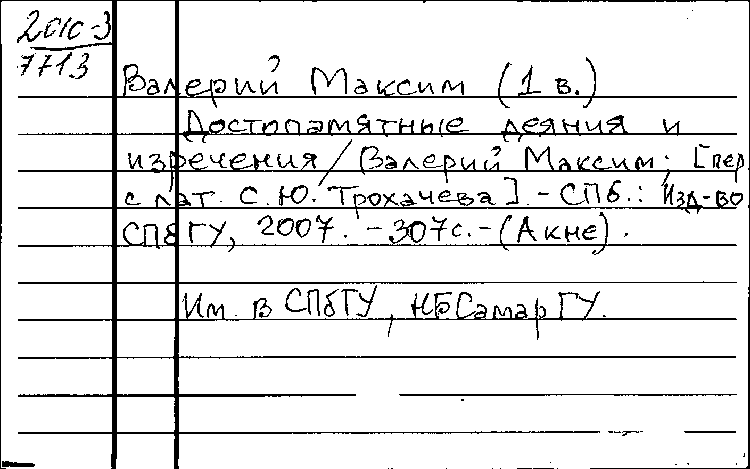 2010-3
7713
Валерий Максим (1 в.)
Достопамятные деяния и
изречения / Валерий Максим; [пер
с лат. С. Ю. Трохачева]. - СПб.: Изд-во
СПбГУ, 2007. - 307с. - (А кне).
Им. в СПбГУ, НБСамарГУ.